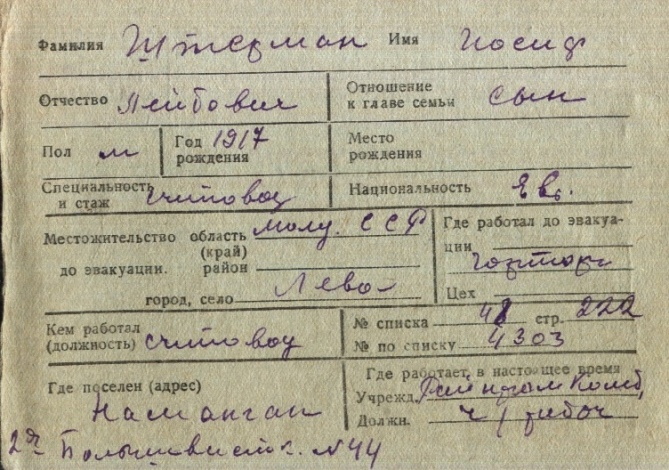 Фамилия Штерман Имя Иосиф
Отчество Лейбович Отношение к главе семьи сын
Пол м Год рождения 1917 Место рождения
Специальность и стаж считовод Национальность Евр.
Местожительство область (край) Молд. ССР Где работал до эвакуации горторг
до эвакуации. район
город, село Лево Цех
Кем работал (должность) считовод № списка 48 стр. 222
№ по списку 4303
Где поселен (адрес) Наманган Где работает, в настоящее время
Учрежд. Комб,
Должн.
№44